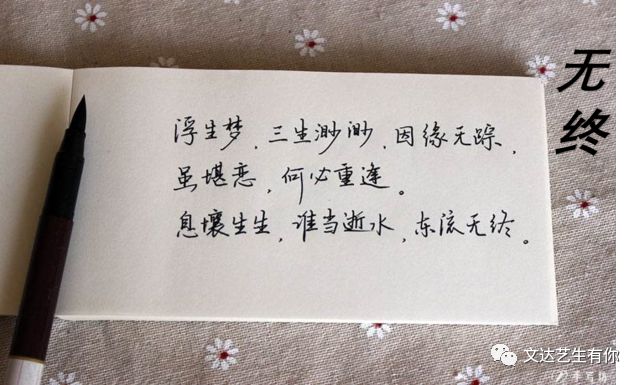 浮生梦，三生渺渺，因缘无踪，
虽堪恋，何必重逢。
息壤生生，谁当逝水，东流无终。
无终
文达艺生有你